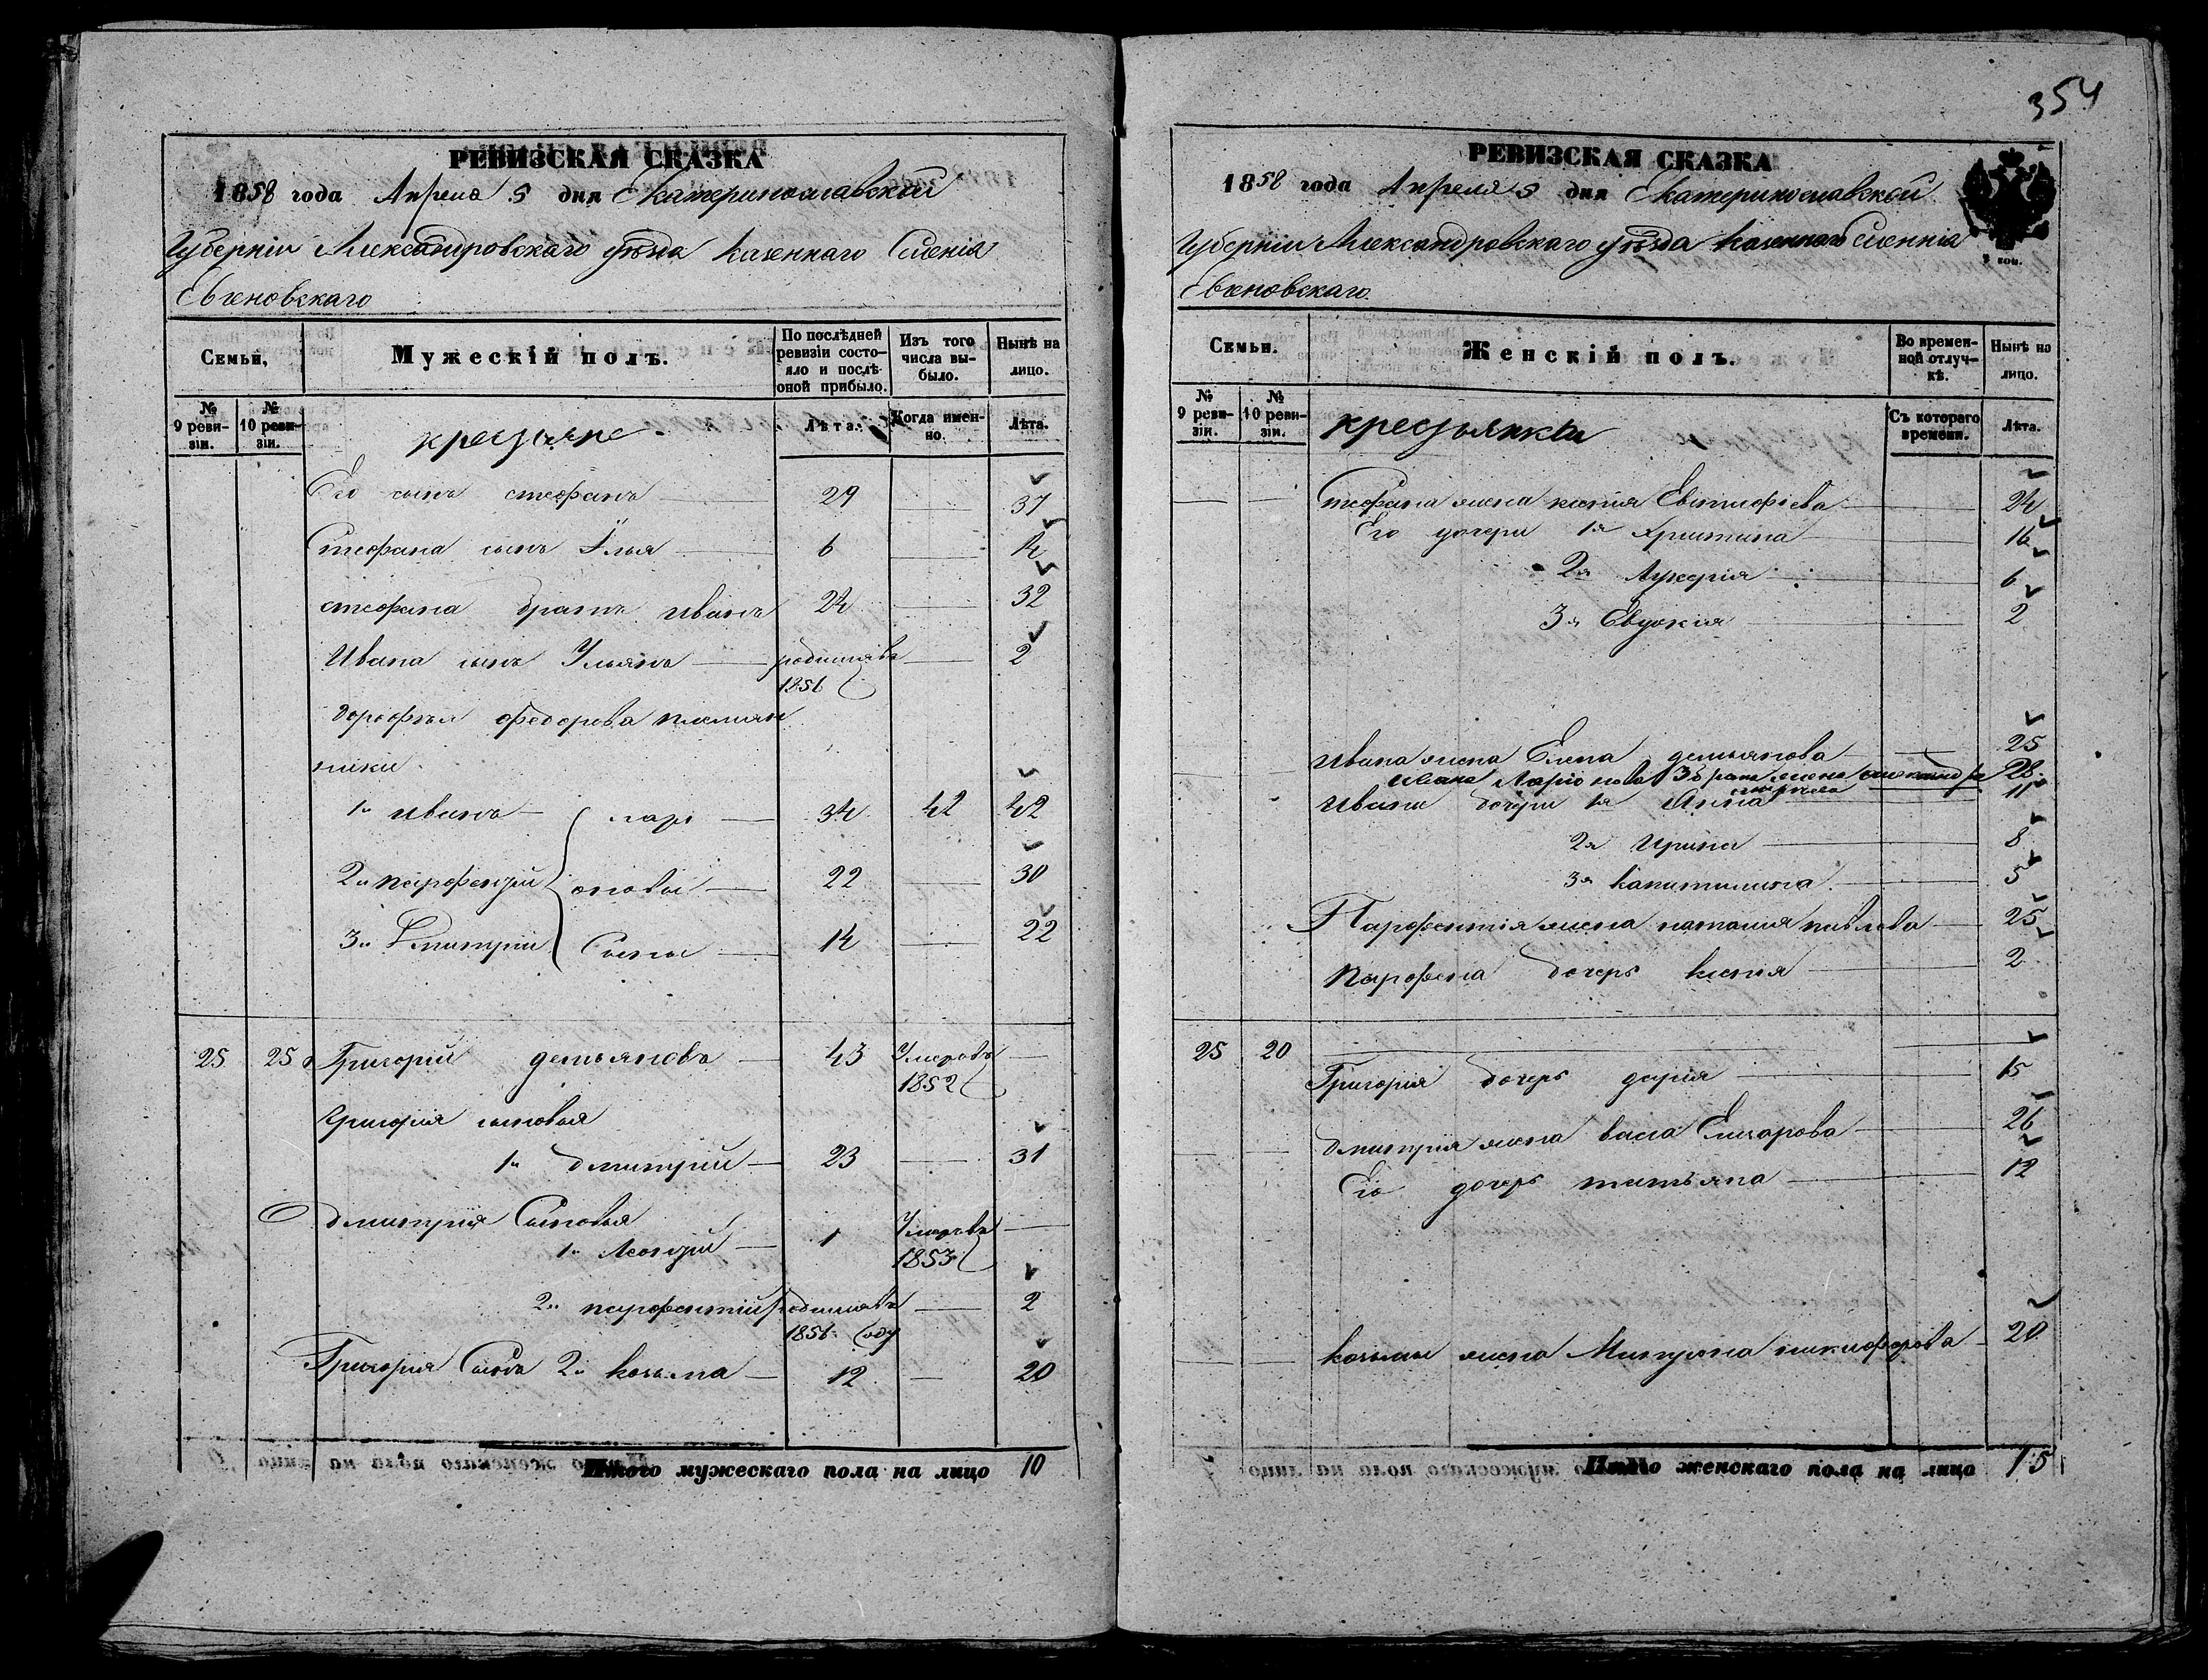 354
РЕВИЗСКАЯ СКАЗКА
1858 года Апреля 5 дня Екатеринославской
Губерніи Александровскаго уѣзда казеннаго Селенія
Семьи.
Мужескій полъ.
По послѣдней ревизіи состояло и послѣ оной прибыло.
Изъ того числа выбыло.
Нынѣ на лицо.
№ 9 ревизіи.
№ 10 ревизіи.
крестьяне
Лѣта.
Когда именно.
Лѣта.
Его сынъ стефанъ 29 37
Стефана сынъ Илья 6 14
стефана братъ иванъ 24 32
Ивана сынъ Ульянъ родился въ 2
1856
дорофѣя федорова племян
ники
1й иванъ лари 34 42 42
2й парфентій оновы 22 30
3й Дмитрій Сыны 14 22
25 25 Григорій демьяновъ 43 Умеръ въ
1852
григорія сыновья
1й дмитрій 23 31
дмитрія Сыновья
1й Леонтій 1 Умеръ въ
1853
2й парфентій родился въ 2
1856 году
Григорія Сынъ 2й козьма 12 20
Итого мужескаго пола на лицо 10
РЕВИЗСКАЯ СКАЗКА
1858 года Апреля 5 дня Екатеринославской
Губерніи Александровскаго уѣзда казеннаго Селенія
Семьи.
Женскій полъ.
Во временной отлучкѣ.
Нынѣ на лицо.
№ 9 ревизіи.
№ 10 ревизіи.
крестьянки
Съ котораго времени.
Лѣта.
Стефана жена ксенія 24
Его дочери 1я Христина 16
2я Лукерія 6
3я Евдокія 2
Ивана жена Елена демьянова 25
ивана Ларіонова жена 28
Ивана дочери 1я Анна 11
2я Ирина 8
3я капитолина 5
Парфентія жена наталія павлова 25
Парфена дочерь ксенія 2
25 20
Григорія дочерь дарія 15
дмитрія жена васса Елизарова 26
Его дочерь татьяна 12
козьмы жена Матрона никифорова 20
Итого женскаго пола на лицо 15